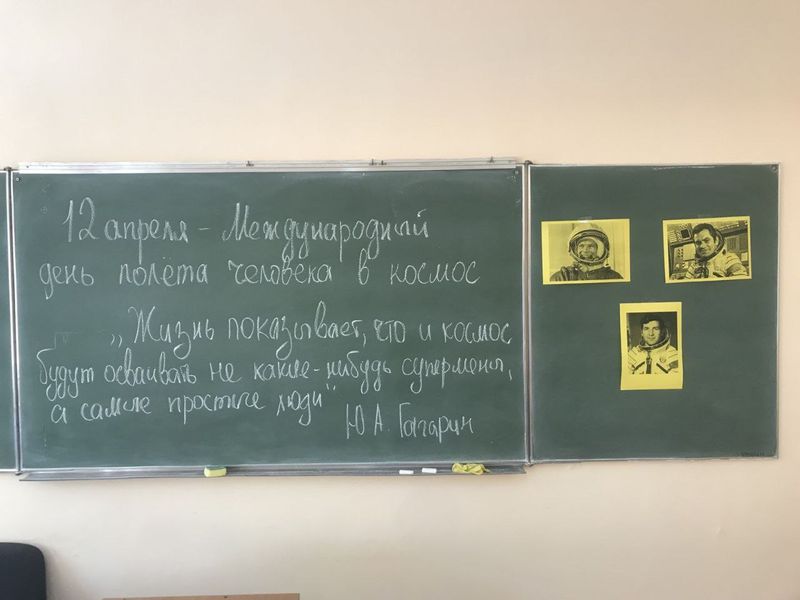 12 апреля – Международный
день полёта человека в космос
„Жизнь показывает, что и космос
будут осваивать не какие-нибудь супермены,
а самые простые люди"
Ю.А. Гагарин